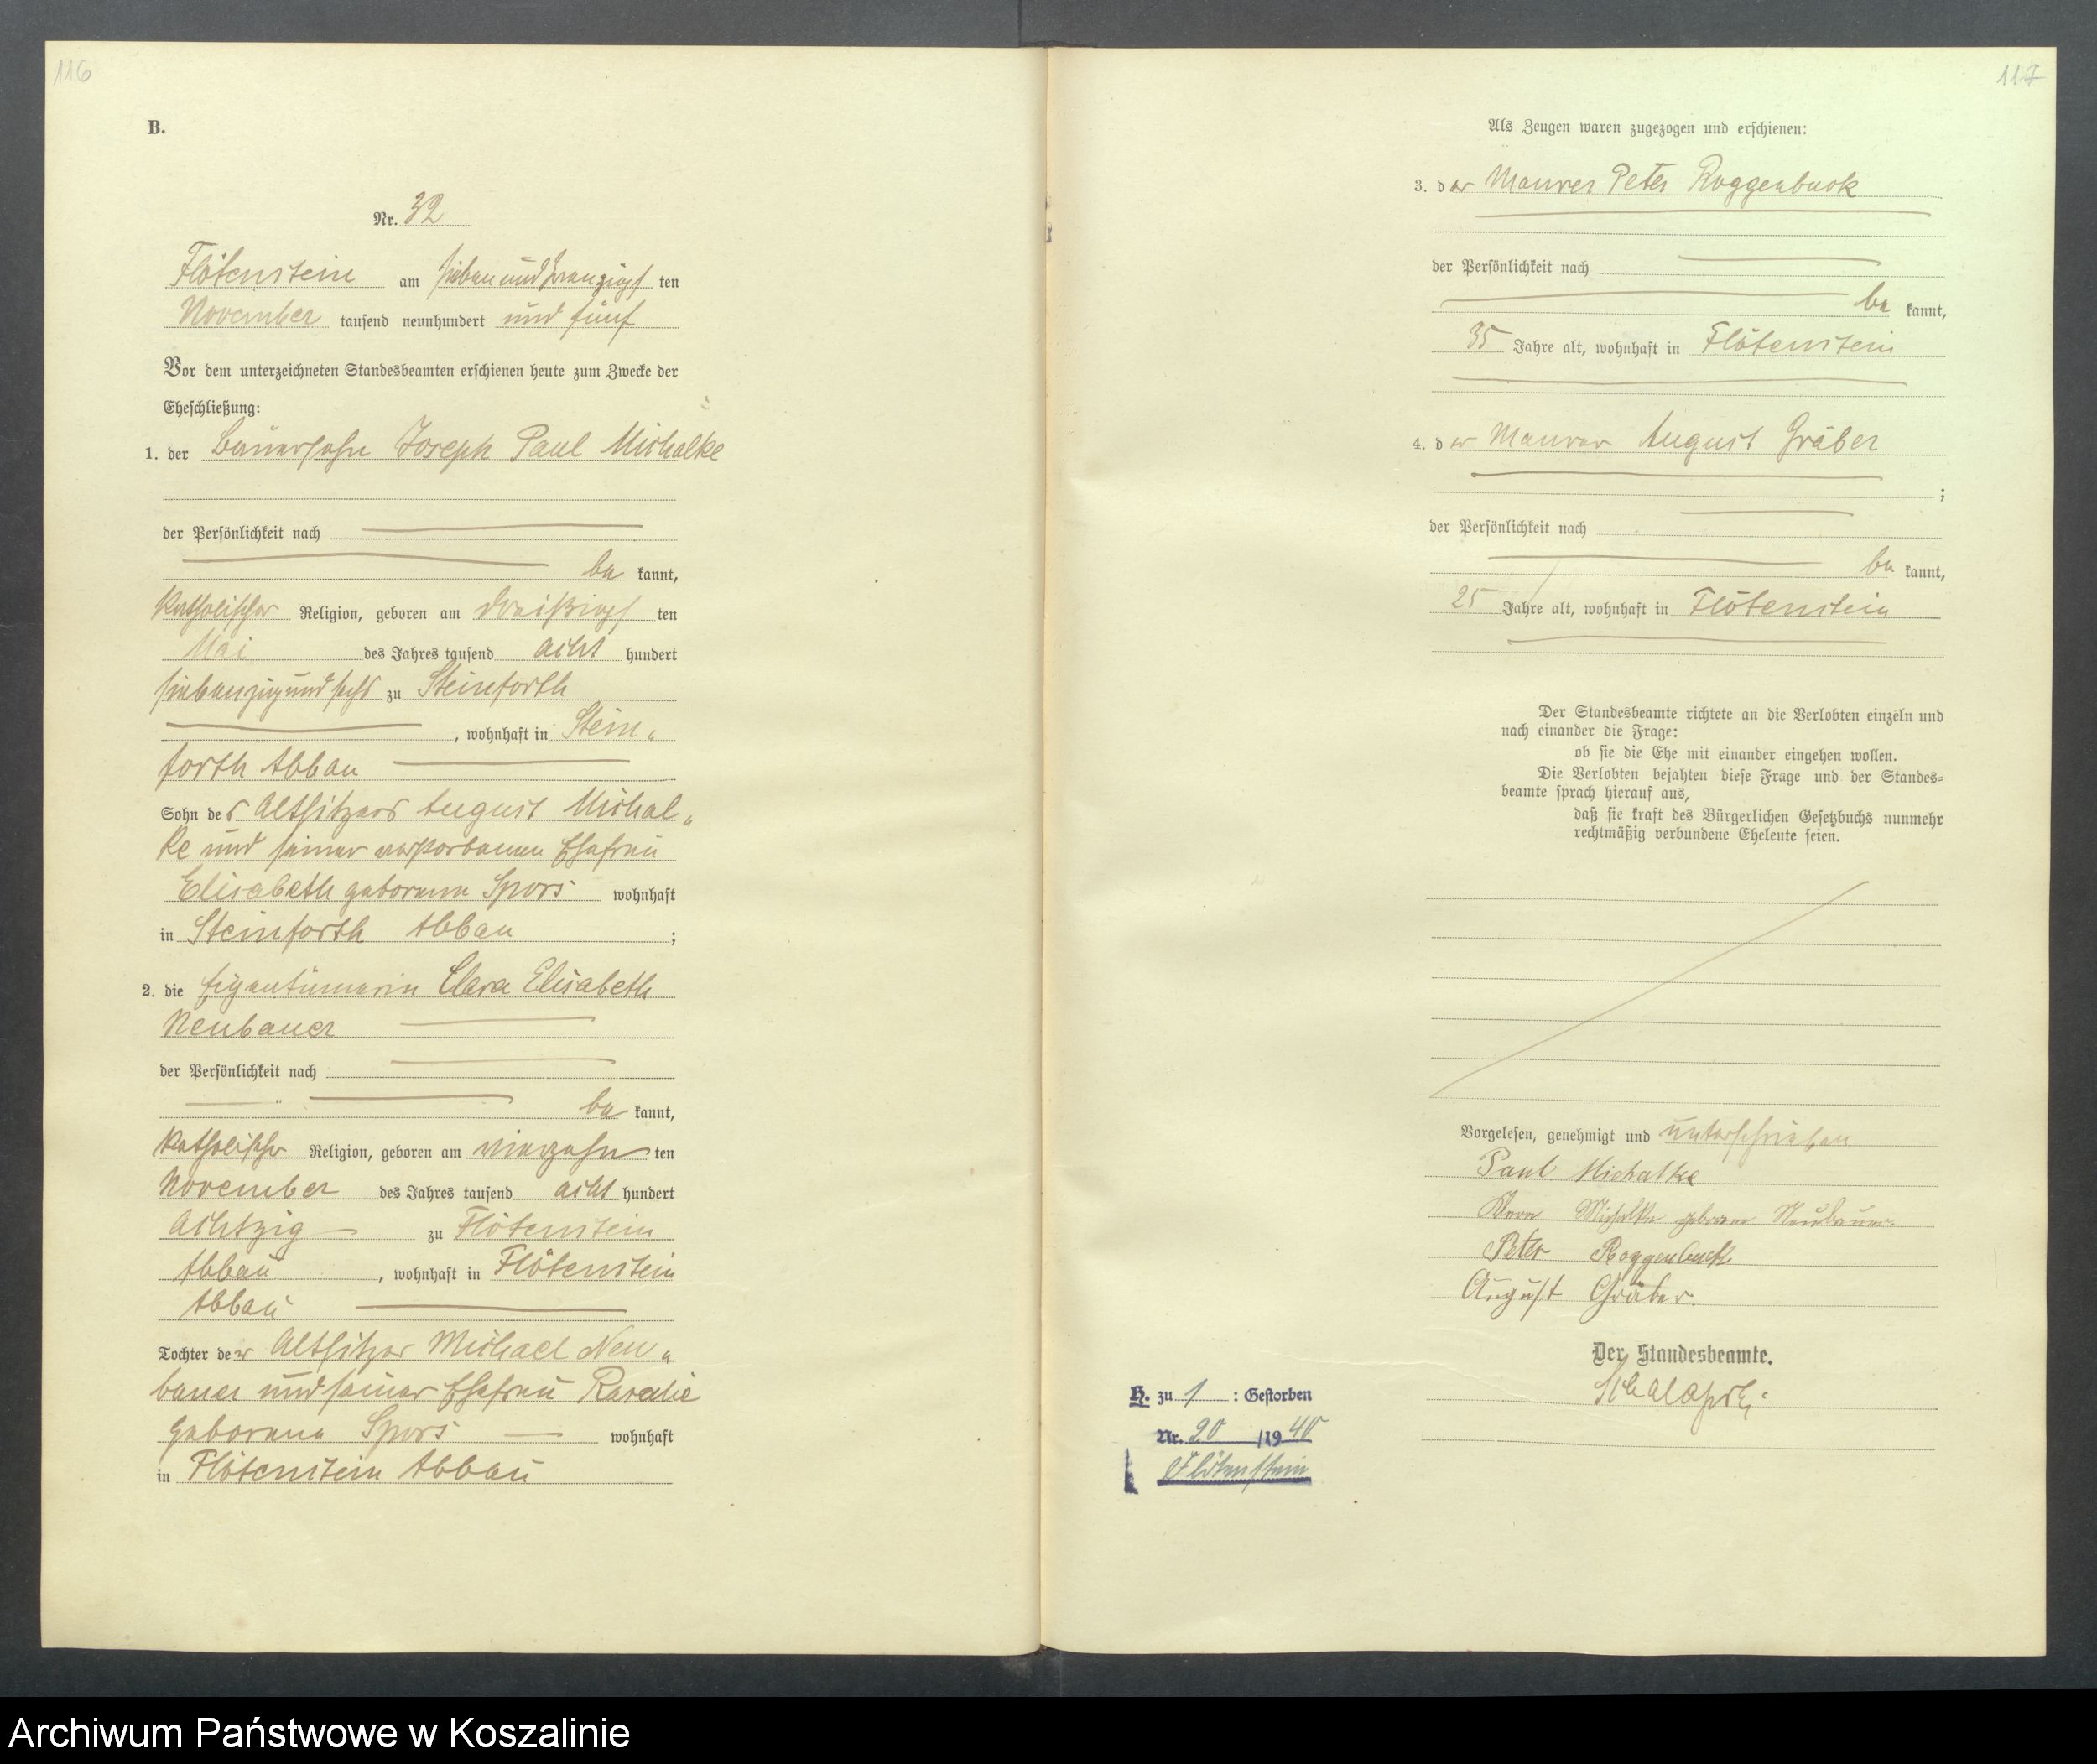 116
B.
Nr. 32
Flötenstein am siebenundzwanzigs ten
November tausend neunhundert und fünf
Vor dem unterzeichneten Standesbeamten erschienen heute zum Zwecke der
Eheschließung:
1. der Bauersohn Joseph Paul Michalke
der Persönlichkeit nach
be kannt,
katholischer Religion, geboren am dreißigs ten
Mai des Jahres tausend acht hundert
siebenzigundsechs zu Steinforth
, wohnhaft in Stein„
forth Abbau
Sohn des Altsitzers August Michal„
ke und seiner verstorbenen Ehefrau
Elisabeth geborene Spors wohnhaft
in Steinforth Abbau ;
2. die Eigentümerin Clara Elisabeth
Neubauer
der Persönlichkeit nach
be kannt,
katholischer Religion, geboren am vierzehn ten
November des Jahres tausend acht hundert
Achtzig zu Flötenstein
Abbau , wohnhaft in Flötenstein
Abbau
Tochter der Altsitzer Michael Neu„
bauer und seiner Ehefrau Rosalie
geborene Spors wohnhaft
in Flötenstein Abbau
117
Als Zeugen waren zugezogen und erschienen:
3. der Maurer Peter Roggenbuck
der Persönlichkeit nach
be kannt,
35 Jahre alt, wohnhaft in Flötenstein
4. der Maurer August Gräber
;
der Persönlichkeit nach
be kannt,
25 Jahre alt, wohnhaft in Flötenstein
Der Standesbeamte richtete an die Verlobten einzeln und
nach einander die Frage:
ob sie die Ehe mit einander eingehen wollen.
Die Verlobten bejahten diese Frage und der Standes-
beamte sprach hierauf aus,
daß sie kraft des Bürgerlichen Gesetzbuchs nunmehr
rechtmäßig verbundene Eheleute seien.
Vorgelesen, genehmigt und unterschrieben
Paul Michalke
Michalke geborene Neubauer
Peter Roggenbuck
August Gräber.
Der Standesbeamte.
H. zu 1 : Gestorben
Nr. 20 /1940
Flötenstein
Archiwum Państwowe w Koszalinie